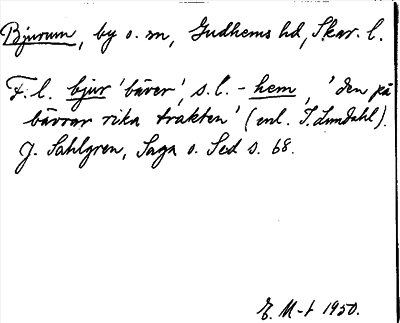 Bjurum, by o. sn, Gudhems hd, Skar. l.
F. l. bjur 'bäver', s. l. - hem, 'den på
bävrar rika trakten' (enl. T. Lundahl).
J. Sahlgren, Saga o. Sed s. 68.
E. M-t 1950.